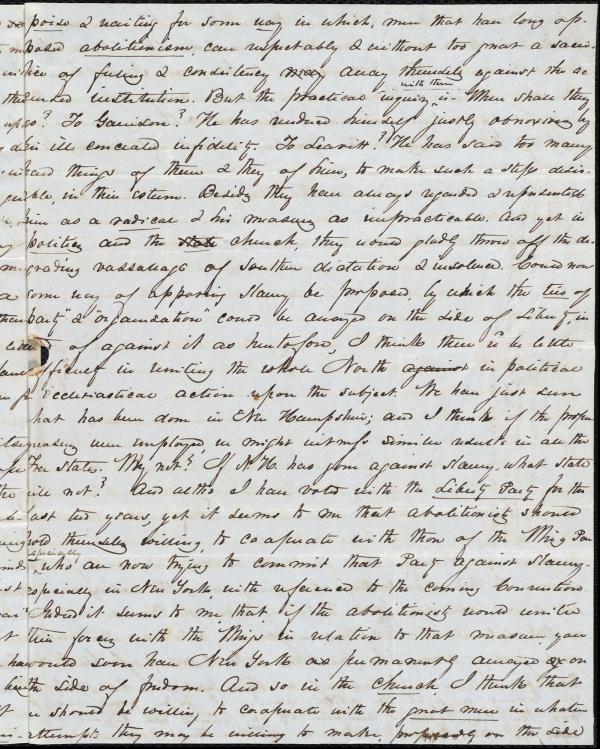 poise & waiting for some way in which, men that have long op-
posed abolitionism, can respectably & without too great a sacri-
fice of feeling & consistency array themselves against the ac-
cursed institution. But the practical inquiry with them is - When shall they
go? To Garrison? He has rendered himself justly obnoxious by
an ill concealed infidelity. To Leavitt? He has said too many
hard things of them & they of him, to make such a step desir-
able, in their esteem. Besides they have always regarded & represented
him as a radical & his measures as impracticable. And yet in
politics and the church, they would gladly throw off the de-
grading vassalage of southern dictation & insolence. Could now
some way of opposing slavery be proposed, by which the ties of
party" & "organization" could be arrayed on the side of Liberty, in
of against it as heretofore, I think there wd be little
difficulty in uniting the whole North against in political
& ecclesiastical action upon the subject. We have just seen
what has been done in New Hampshire; and I think if the proper
measures were employed, we might witness similar results in all the
Free States. Why not? If N.H. has gone against slavery, what state
will not? And altho I have voted with the Liberty Party for the
last two years, yet it seems to me that abolitionists should
hold themselves willing, to cooperate with those of the Whig Par
especially who are now trying to commit that Party against slavery-
especially in New York, with reference to the coming Convention.
Indeed it seems to me, that if the abolitionists would unite
their forces with the Whigs in relation to that measure, you
would soon have New York as permanently arrayed on
the side of freedom. And so in the Church, I think that
we should be willing to cooperate with the great men in whatever
attempts they may be willing to make, on the side